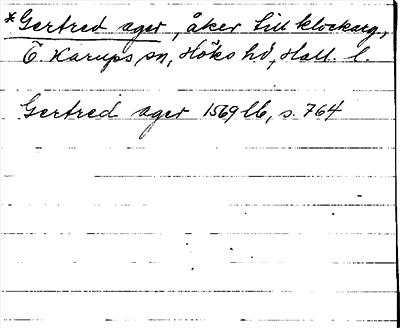 *Gertred ager, åker till klockarg,
Ö. Karups sn, Höks hd, Hall. l.
Gertred ager 1569 lb, s. 764